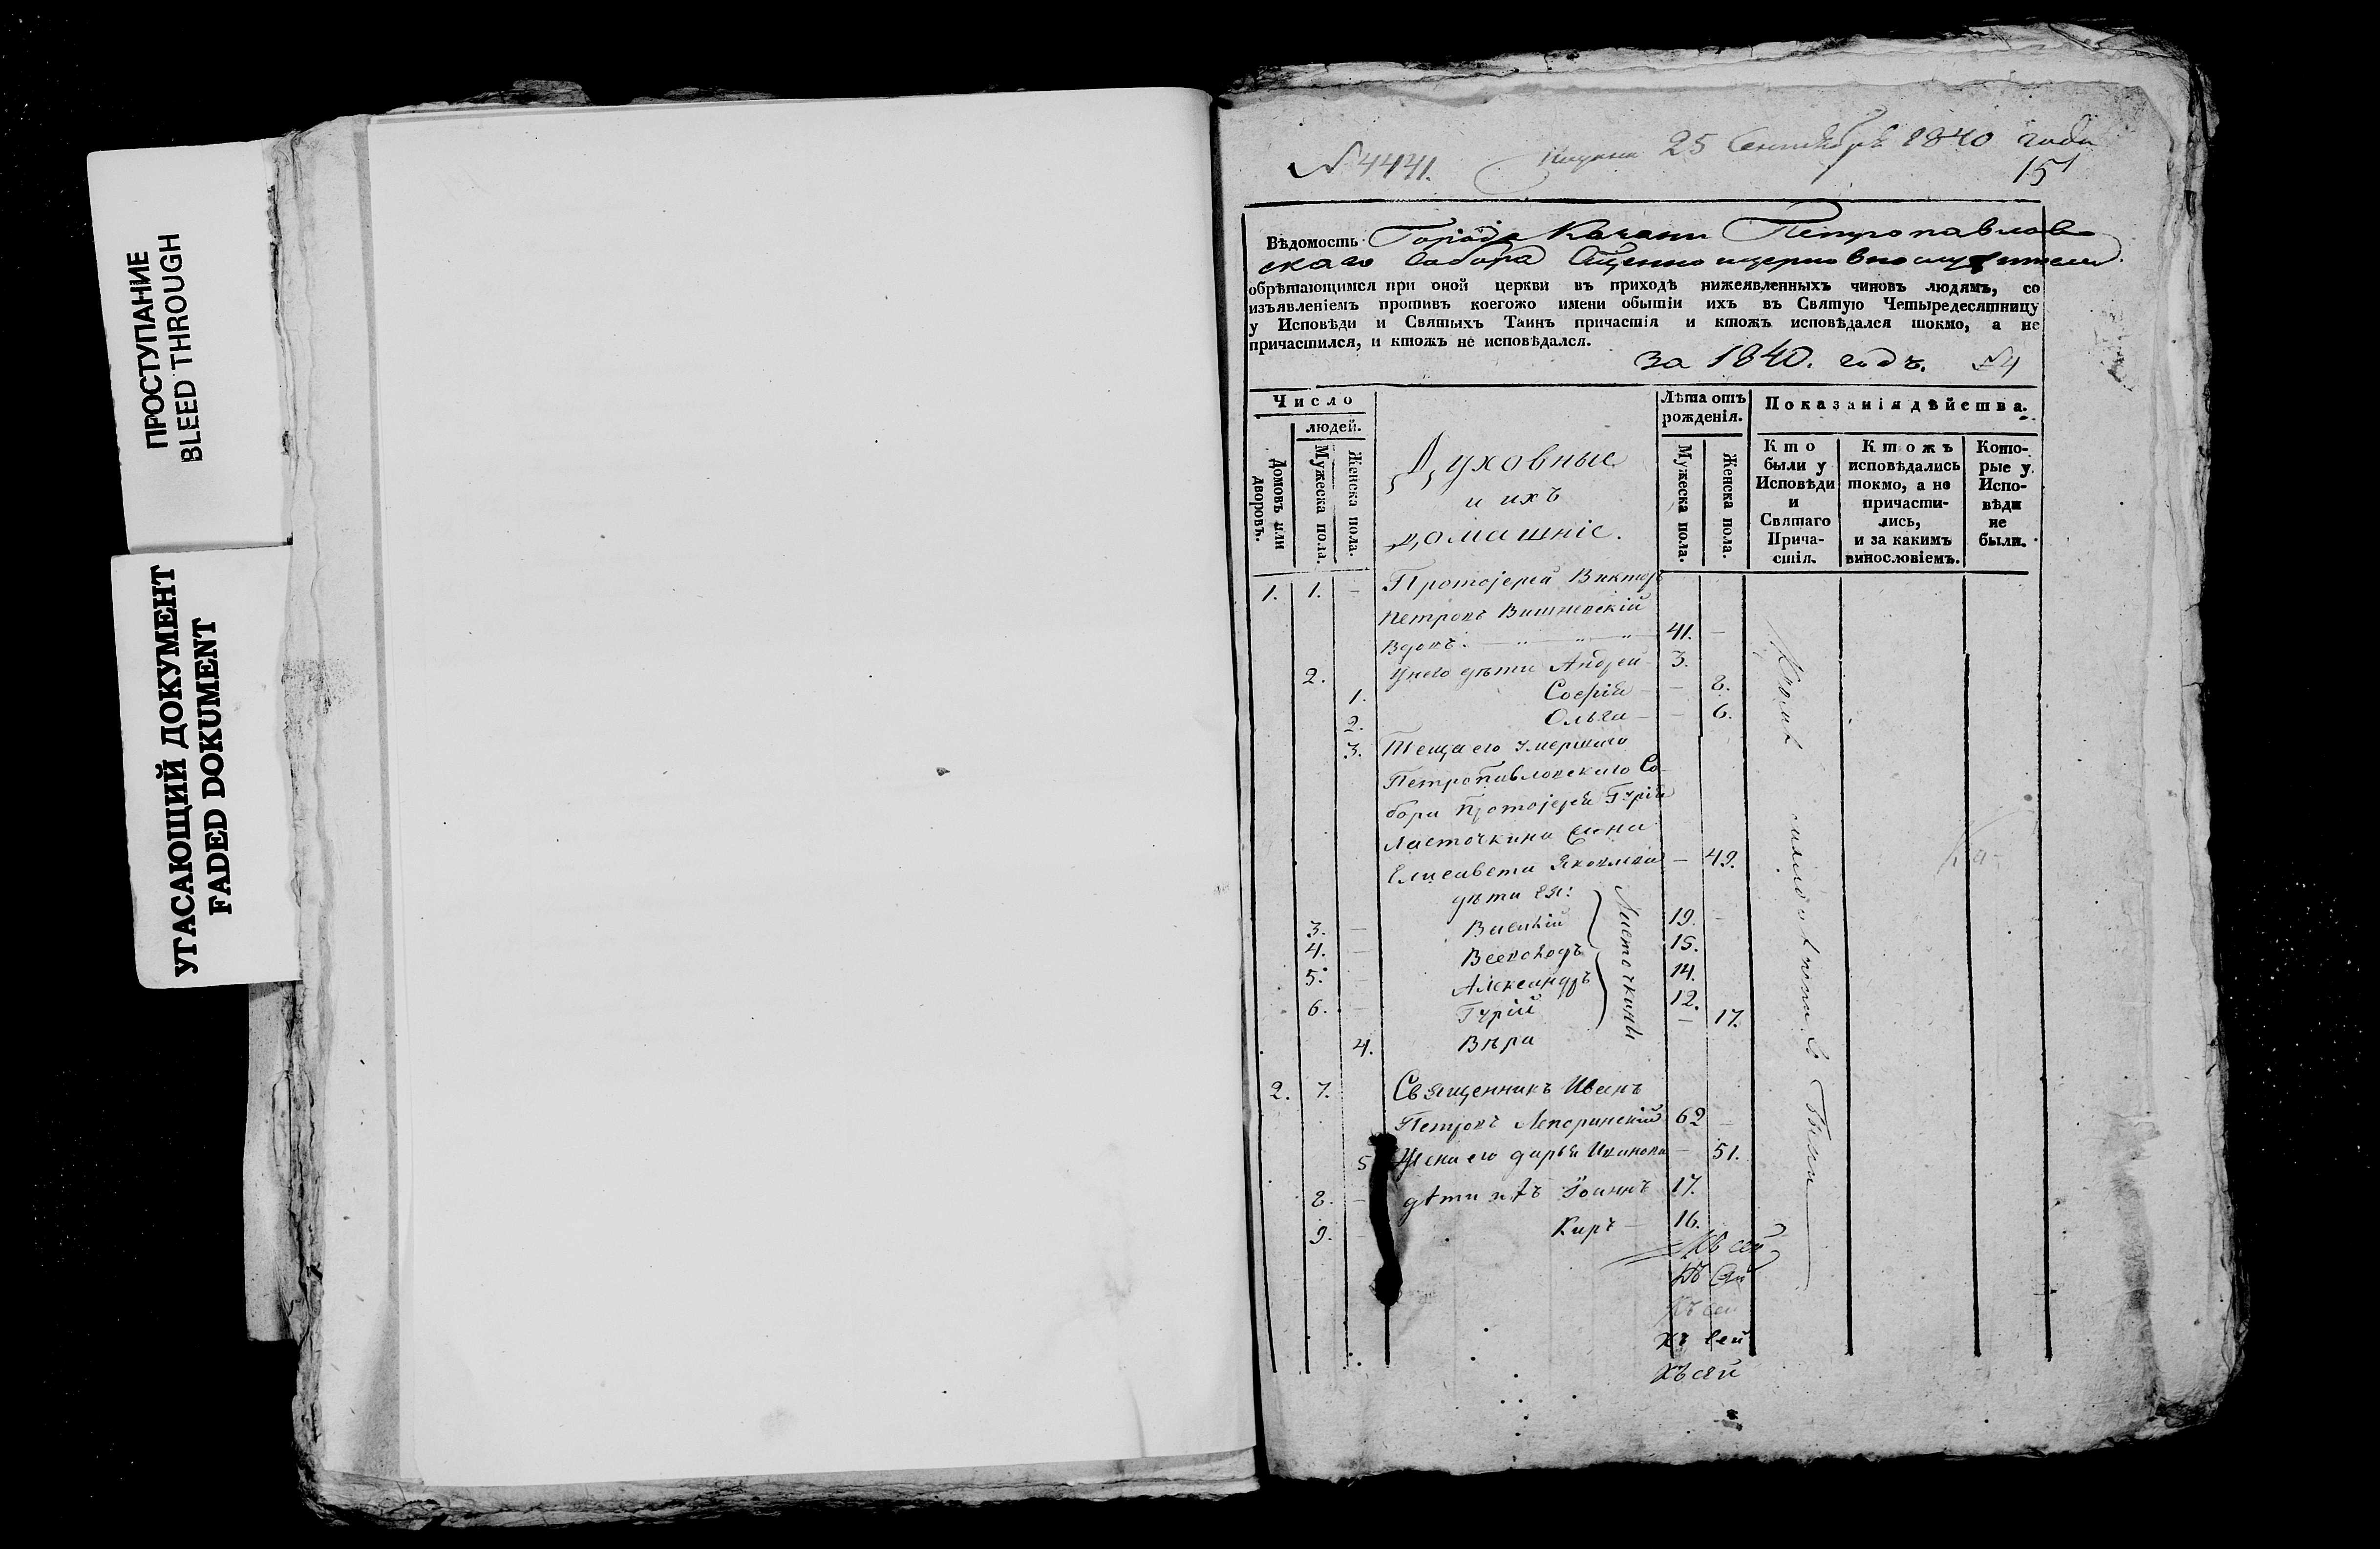 ПРОСТУПАНИЕ
BLEED THROUGH
УГАСАЮЩИЙ ДОКУМЕНТ
FADED DOKUMENT
N 4441. 25 Сентября 1840 года
151
Вѣдомость Города Казани Петропавлов
скаго Собора
обрѣтающимся при оной церкви въ приходѣ нижеявленныхъ чиновъ людямъ, со
изъявленіемъ противъ коегожо имени обытіи ихъ въ Святую Четыредесятницу
у Исповѣди и Святыхъ Таинъ причастія и ктожъ исповѣдался токмо, а не
причастился, и ктожъ не исповѣдался.
за 1840. годъ. №4
Число
людей.
Домовъ или дворовъ.
Мужеска пола.
Женска пола.
Духовные
и ихъ
домашніе.
Лѣта отъ
рожденія.
Мужеска пола.
Женска пола.
Показанія дѣйства.
Кто
были у
Исповѣди
и
Святаго
Прича-
стія.
Ктожъ
исповѣдались
токмо, а не
причасти-
лись,
и за какимъ
винословіемъ.
Кото-
рые у
Испо-
вѣди
не
были.
1. 1. – Протоіерей Викторъ
Петровъ Вишневскій
Вдовъ. 41. –
2. У него дѣти Андрей 3.
1. Софія – – 8.
2. Ольга – – 6.
3. Теща его умершаго
Петропавловскаго Со-
бора Протоіерея Гурія
Ласточкина жена
Елисавета Яковлева – 49.
дѣти ея:
3. – Василій 19. –
4. – Всеволодъ 15.
5. – Александръ 14.
6. – Гурій 12.
4. Вѣра – 17.
Ласточкины
2. 7. Священникъ Иванъ
Петровъ Лепоринскій 62 –
5 Жена его Дарья Иванова – 51.
8. – дѣти ихъ Іоаннъ 17.
9. Киръ – 16.
Кромѣ были
Къ сей
Къ сей
Къ сей
Къ сей
Къ сей